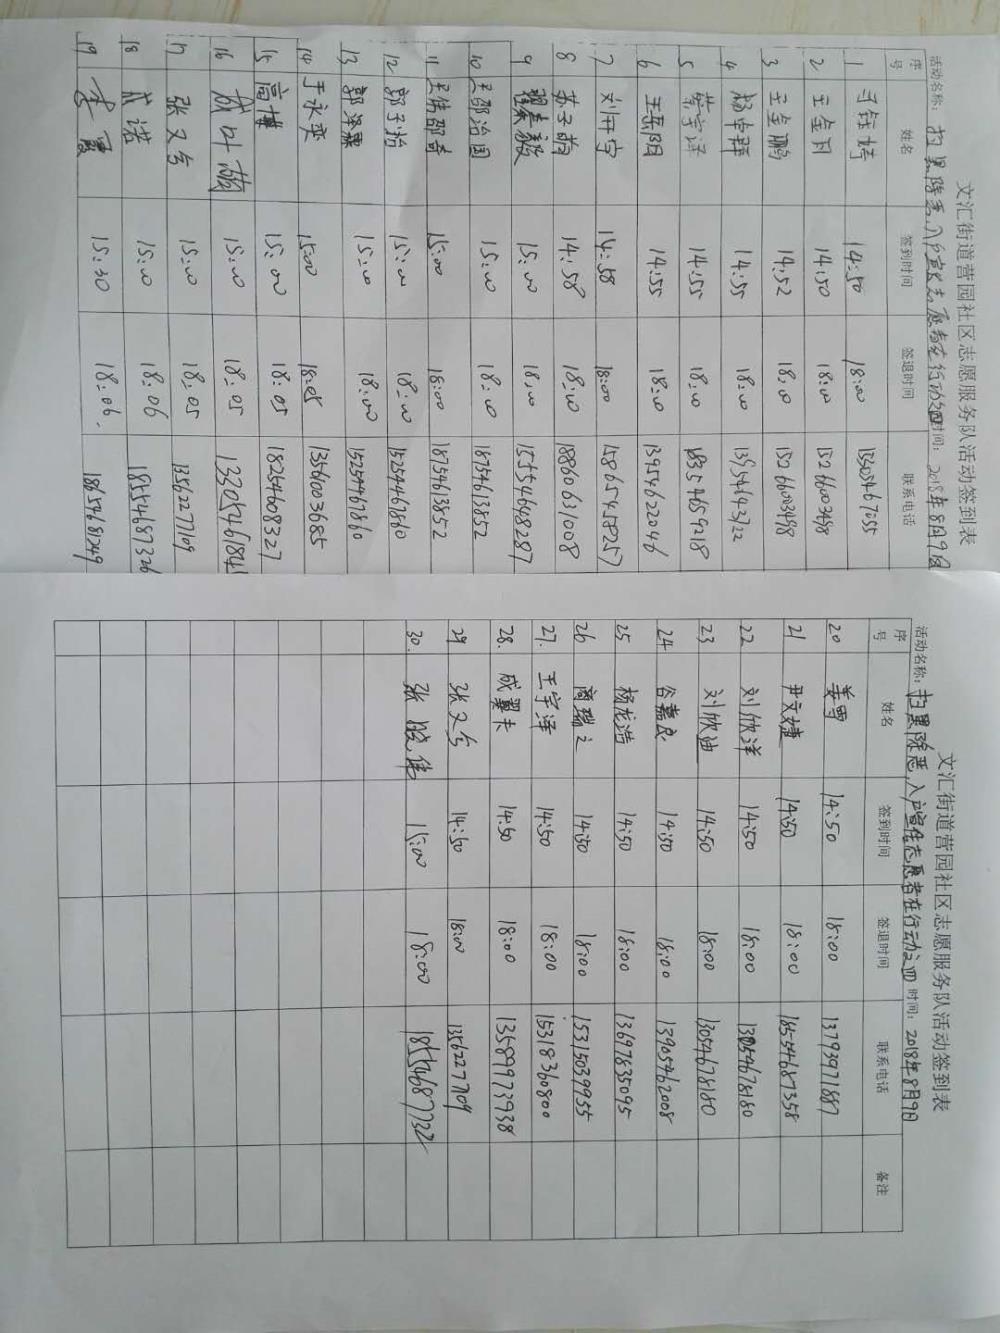 文汇街道营园社区志愿服务队活动签到表
活动名称：扫黑除恶，入户宣传志愿者在行动之四 时间：2018年8月9日
序号 姓名 签到时间 签退时间 联系电话
1 14:50 18:00
2 王金月 14:50 18:00 15266003498
3 王金鹏 14:52 18:00 15266003498
4 杨学群 14:55 18:00
5 14:55 18:00
6 王岳阳 14:55 18:00 13954622046
7 刘开宇 14:58 18:00 15865458257
8 苏子萌 14:58 18:00 18860631008
9 15:00 18:00 15554648287
10 王邵治国 15:00 18:00 18754613852
11 王佳邵奇 15:00 18:00 18754613852
12 郭子怡 15:00 18:00 15254467860
13 郭泽霖 15:00 18:00 15254467860
14 于永奕 15:00 18:05 13561003685
15 高博 15:00 18:05 18254608327
16 15:00 18:05
17 张又兮 15:00 18:05 13562277109
18 武诺 15:00 18:06 18554687326
19 李霞 15:30 18:06. 18654681749
文汇街道营园社区志愿服务队活动签到表
活动名称：扫黑除恶，入户宣传志愿者在行动之四 时间：2018年8月9日
序号 姓名 签到时间 签退时间 联系电话 备注
20 姜雪 14:50 18:00 13793971887
21 尹文婕 14:50 18:00 18554687358
22 刘欣洋 14:50 18:00 13054678180
23 刘欣迪 14:50 18:00 13054678180
24 谷嘉良 14:50 18:00 13905462008
25 杨龙浩 14:50 18:00 13697835095
26 商瑞之 14:50 18:00 15315039955
27. 王宇泽 14:50 18:00 15318360800
28. 成翼夫 14:50 18:00 13589973938
29 张又兮 14:50 18:00 13562277109
30. 张晓伟 15:00 18:00 18554687732